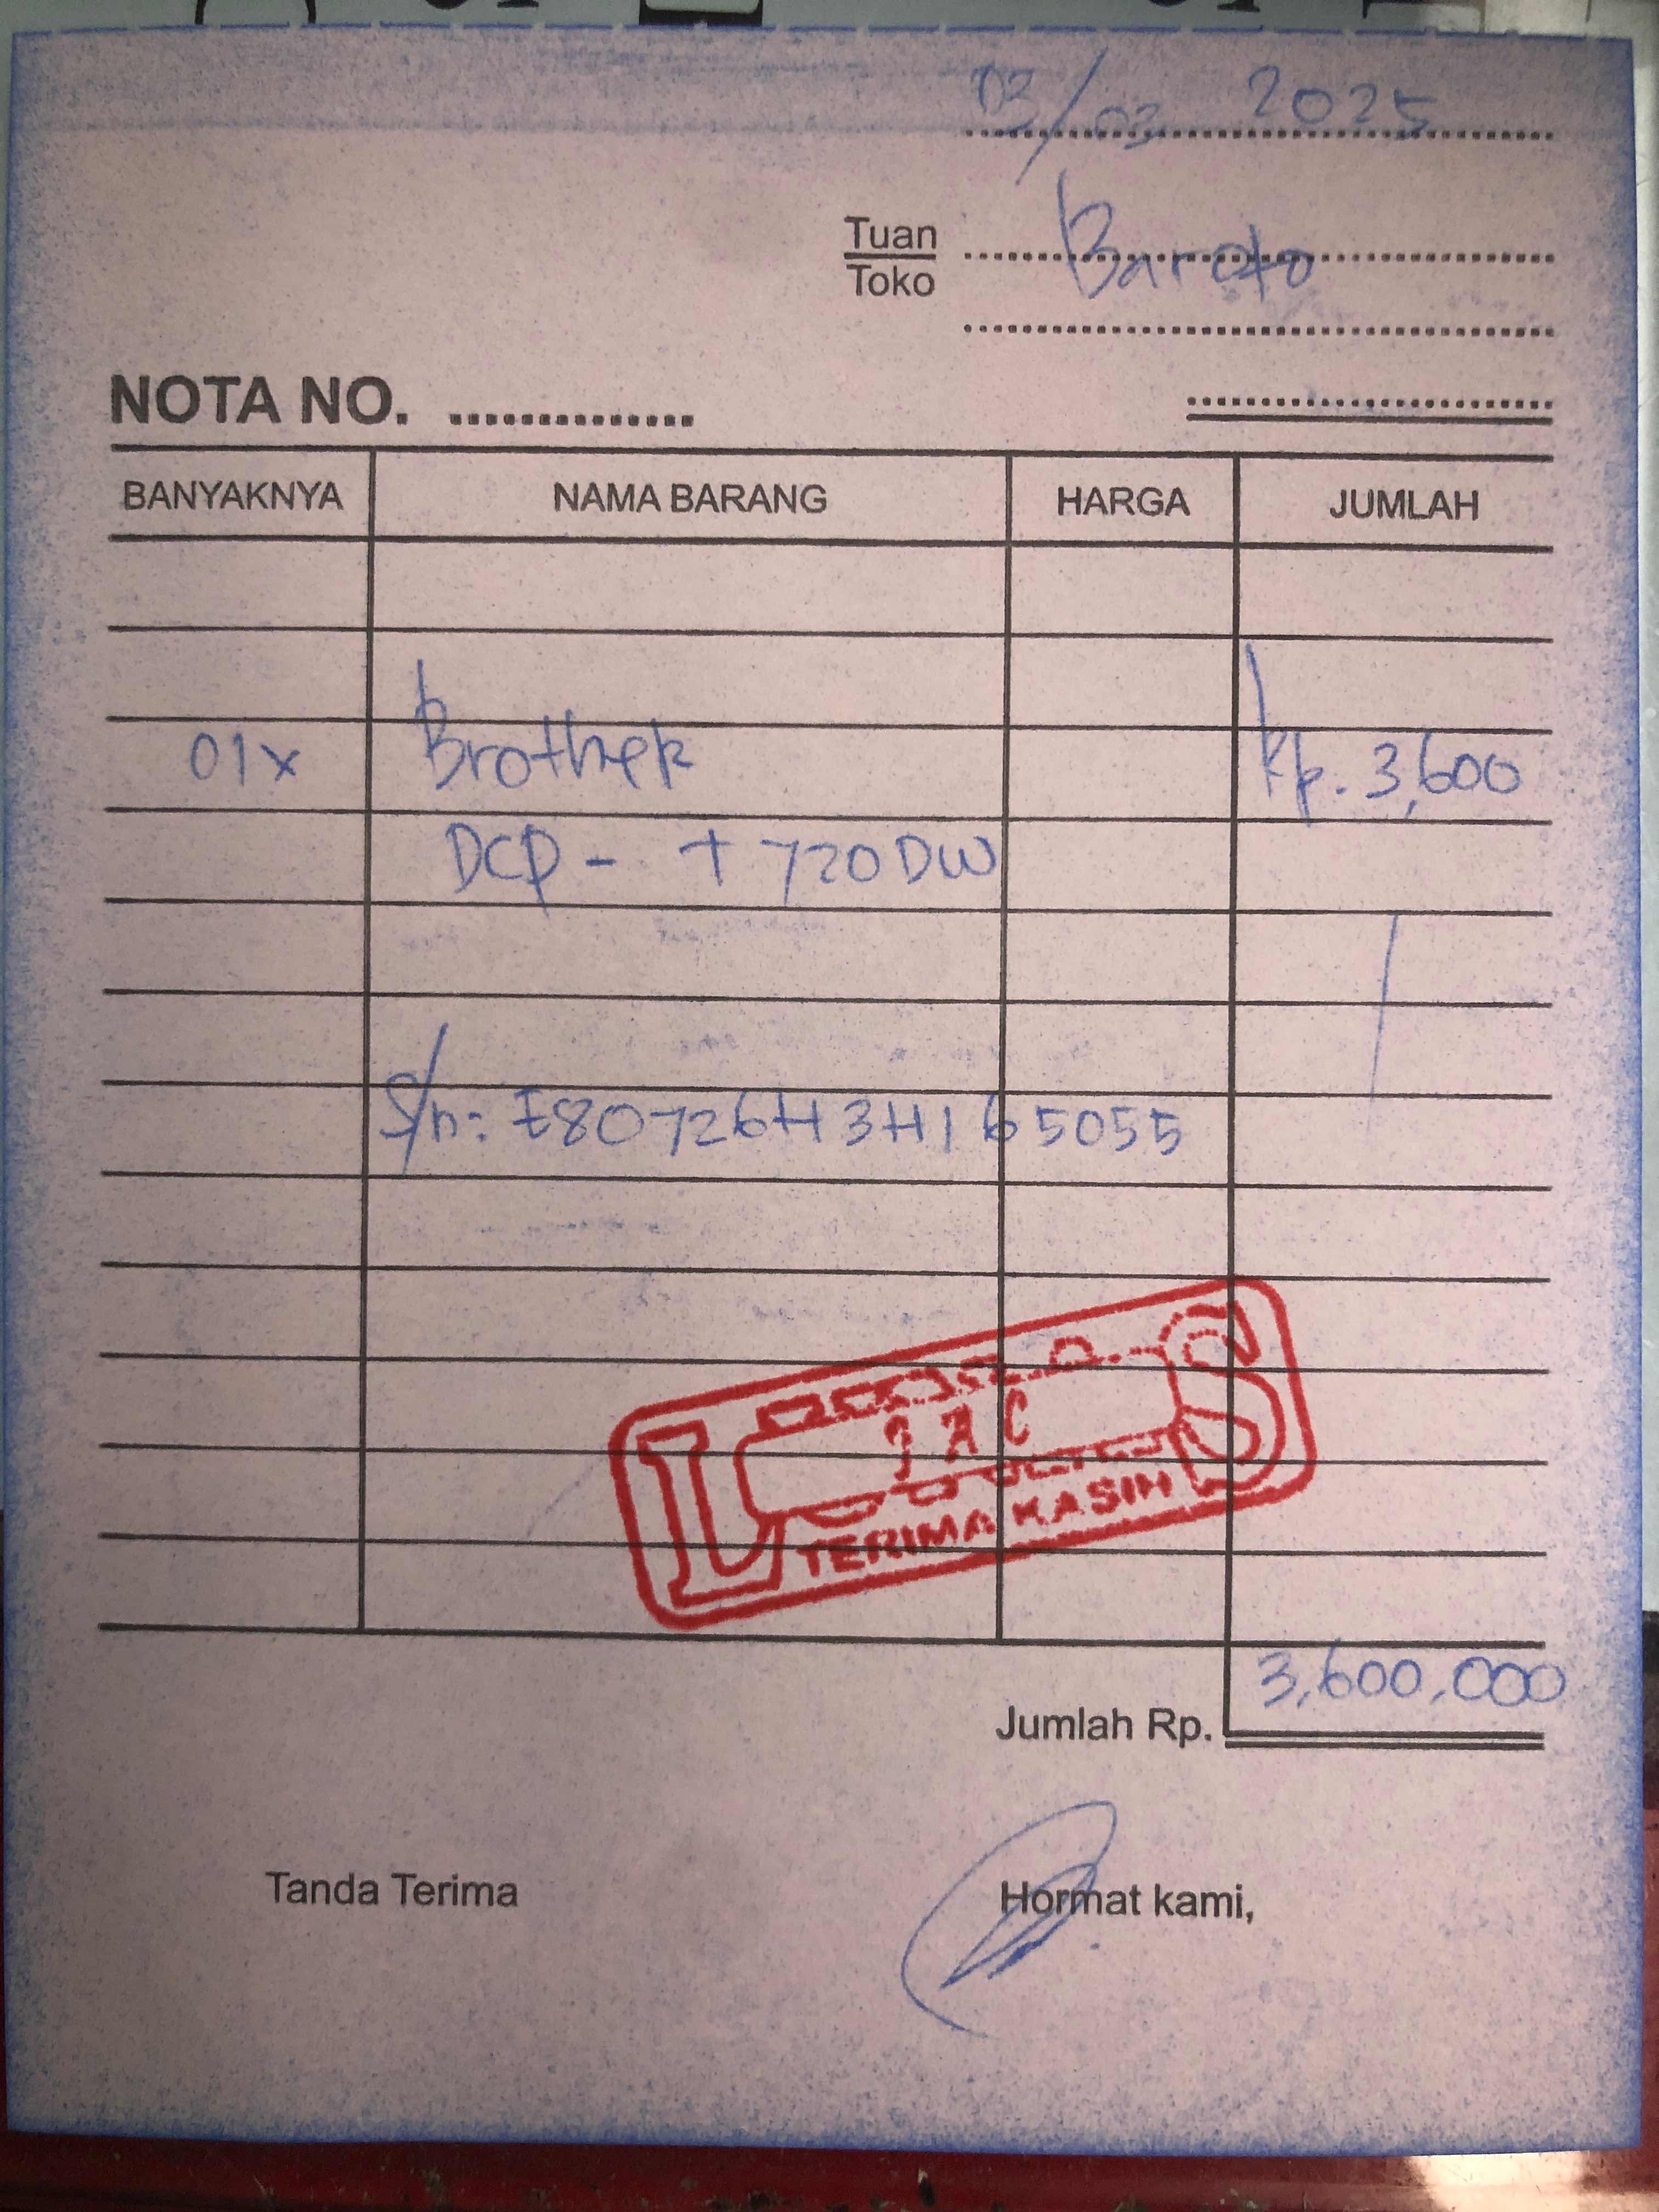 03/03 2025
Tuan
Toko
Baroto
NOTA NO. ..............
BANYAKNYA NAMA BARANG HARGA JUMLAH
01x Brother Rp. 3,600
DCP - T 720DW
S/n: E80726H3H165055
L JAC S
TERIMA KASIH
Jumlah Rp. 3,600,000
Tanda Terima Hormat kami,